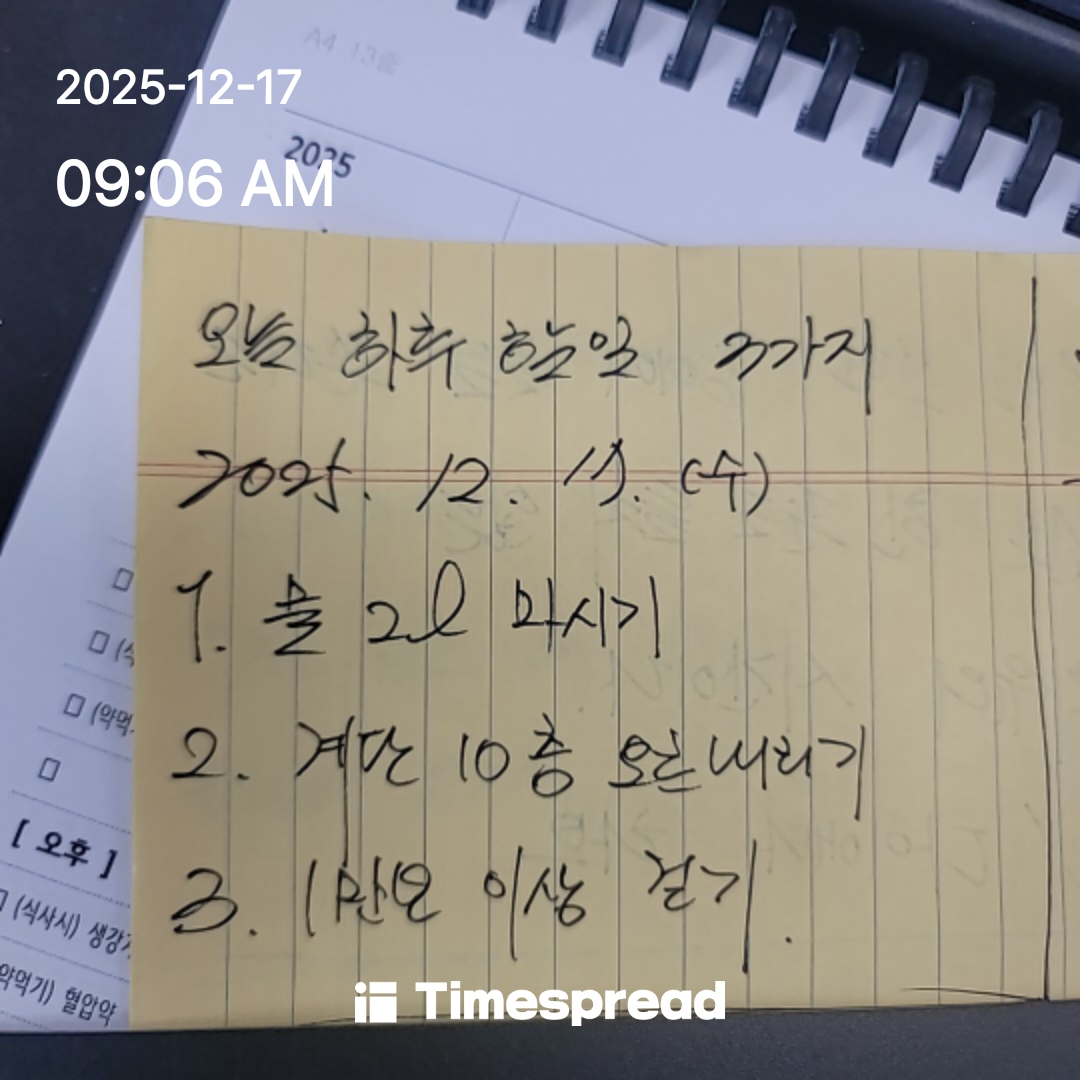 2025-12-17
09:06 AM
A4 13
2025
오늘 하루 할일 3가지
2025. 12. 17. (수)
1. 물 2l 마시기
2. 계단 10층 오르내리기
3. 1만보 이상 걷기.
(약먹
[ 오후 ]
(식사시) 생강
약먹기) 혈압약
Timespread